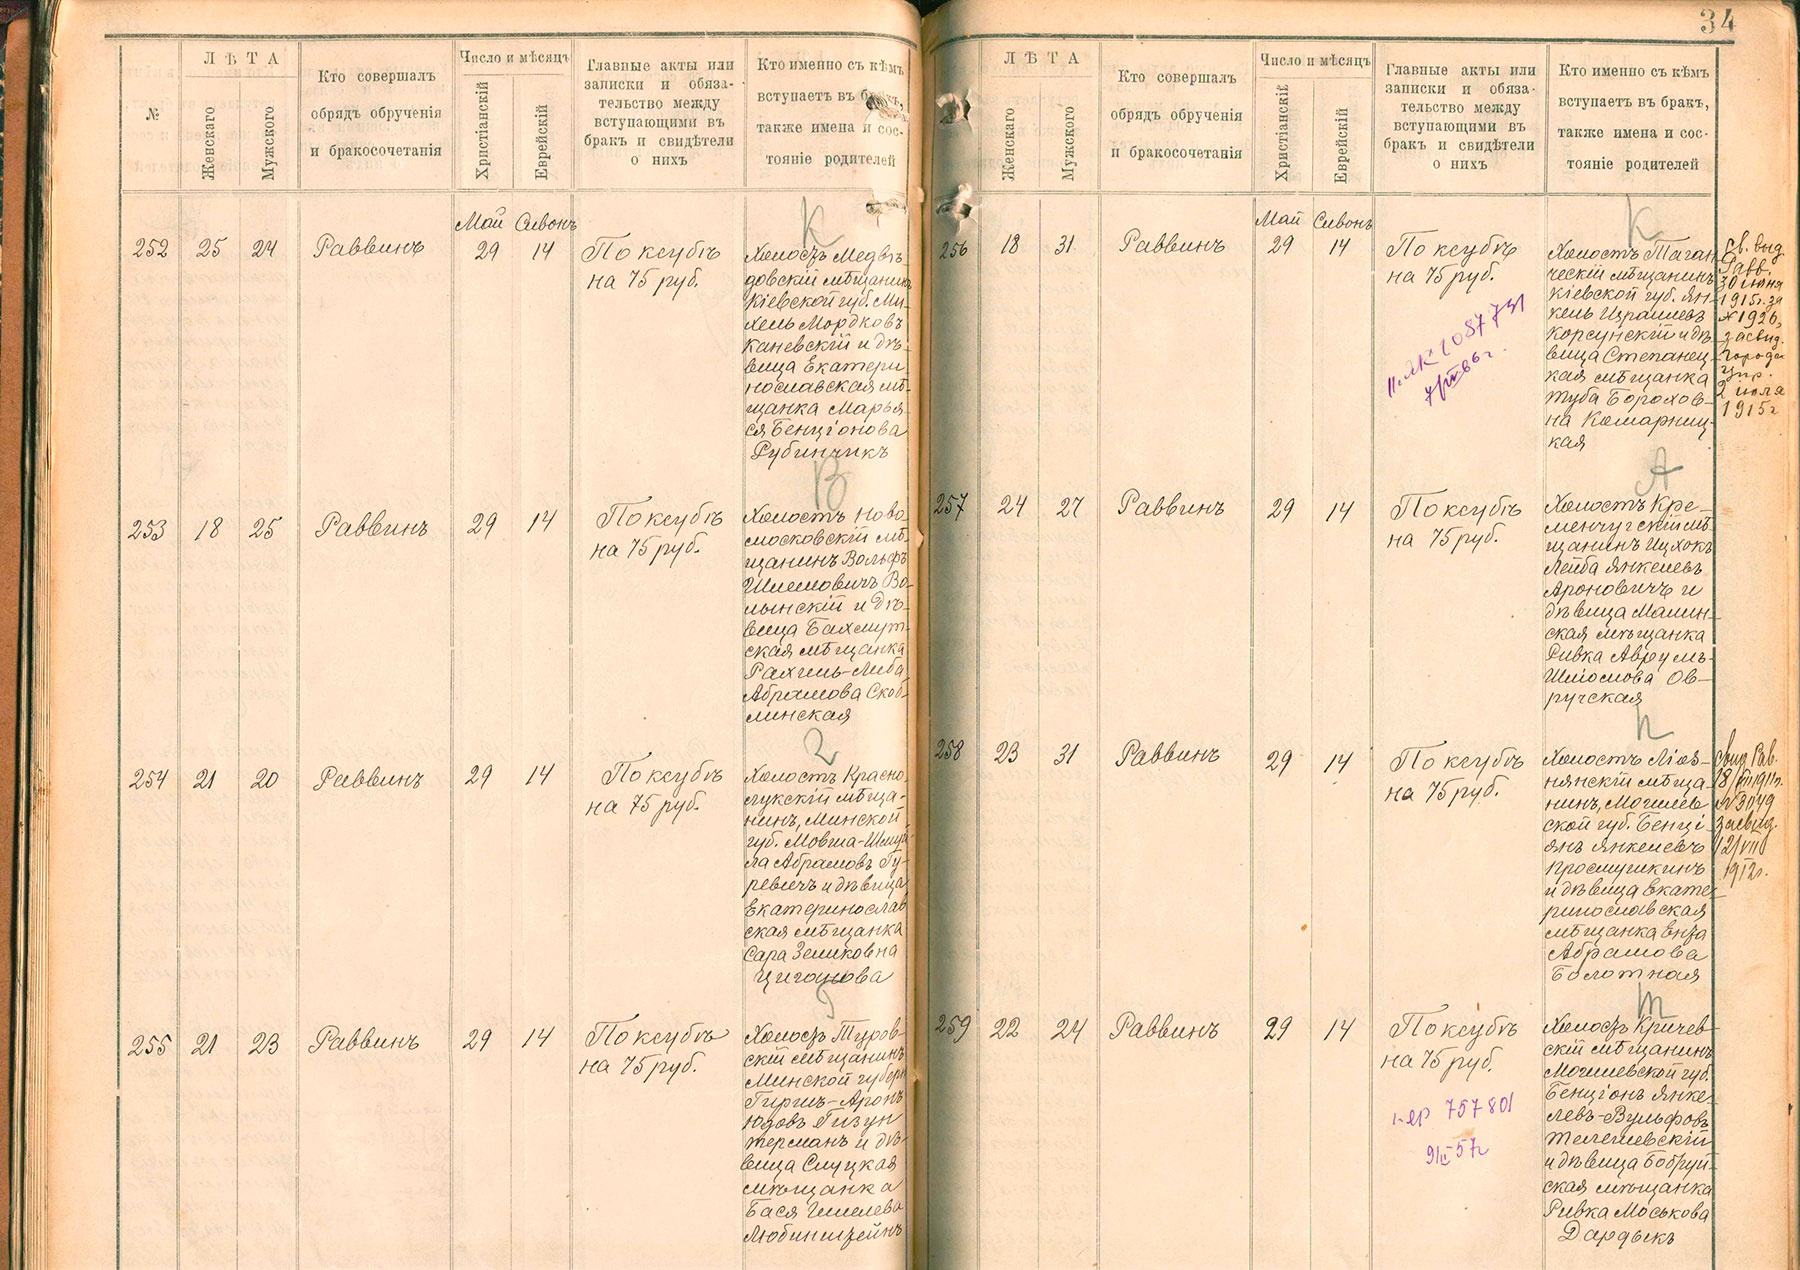 34
№
ЛѢТА
Женскаго
Мужского
Кто совершалъ
обрядъ обрученія
и бракосочетанія
Число и мѣсяцъ
Христіанскій
Еврейскій
Главные акты или
записки и обяза-
тельство между
вступающими въ
бракъ и свидѣтели
о нихъ
Кто именно съ кѣмъ
вступаетъ въ бракъ,
также имена и сос-
тояніе родителей
Май Сивонъ
252 25 24 Раввинъ 29 14 По ксубѣ
на 75 руб.
К
Холостъ Медвѣ-
довскій мѣщанинъ
Кіевской губ. Ми-
хель Мордковъ
Каневскій и дѣ-
вица Екатери-
нославская мѣ-
щанка Марья-
ся Бенціонова
Рубинчикъ
253 18 25 Раввинъ 29 14 По ксубѣ
на 75 руб.
В
Холостъ Ново-
московскій мѣ-
щанинъ Вольфъ
Шлемовичъ Во-
лынскій и дѣ-
вица Бахмут-
ская мѣщанка
Рахиль-Либа
Абрамова Скоб-
линская
254 21 20 Раввинъ 29 14 По ксубѣ
на 75 руб.
Холостъ Красно-
лукскій мѣща-
нинъ, Минской
губ. Мовша-Шмуй-
ла Абрамовъ Гу-
ревичъ и дѣвица
Екатеринослав
ская мѣщанка
Сара Зеликовна
Циганова
255 21 23 Раввинъ 29 14 По ксубѣ
на 75 руб.
Г
Холостъ Туров-
скій мѣщанинъ
Минской губерн
Гиршъ-Аронъ
Юдовъ Гизун
терманъ и дѣ-
вица Слуцкая
мѣщанка
Бася Гилелева
Любинштейнъ
ЛѢТА
Женскаго
Мужского
Кто совершалъ
обрядъ обрученія
и бракосочетанія
Число и мѣсяцъ
Христіанскій
Еврейскій
Главные акты или
записки и обяза-
тельство между
вступающими въ
бракъ и свидѣтели
о нихъ
Кто именно съ кѣмъ
вступаетъ въ бракъ,
также имена и сос-
тояніе родителей
Май Сивонъ
256 18 31 Раввинъ 29 14 По ксубѣ
на 75 руб.
1087731
К
Холостъ Таган-
ческій мѣщанинъ
Кіевской губ. Ян-
кель Израилевъ
Корсунскій и дѣ-
вица Степанец-
кая мѣщанка
Туба Борохов-
на Комарниц-
кая
Св. выд
Равв.
30 июня
1915г. за
№ 1920,
засвид.
город.
упр.
2 июля
1915г
257 24 27 Раввинъ 29 14 По ксубѣ
на 75 руб.
А
Холостъ Кре-
менчугскій мѣ-
щанинъ Ицхокъ
Лейба Янкелевъ
Ароновичъ и
дѣвица Малин-
ская мѣщанка
Ривка Аврумъ-
Шліомова Ов-
ручская
258 23 31 Раввинъ 29 14 По ксубѣ
на 75 руб.
П
Холостъ Ліоз-
нянскій мѣща-
нинъ, Могилев
ской губ. Бенці-
янъ Янкелевъ
Просмушкинъ
и дѣвица Екате-
ринославская
мѣщанка Енза
Абрамова
Болотная
Свид. Рав.
№ 3049
засвид.
12/VII
1912г.
259 22 24 Раввинъ 29 14 По ксубѣ
на 75 руб.
757801
57г
Т
Холостъ Кричев-
скій мѣщанинъ
Могилевской губ.
Бенціонъ Янке-
левъ-Вульфовъ
Телешевскій
и дѣвица Бобруй-
ская мѣщанка
Ривка Моськова
Дардыкъ